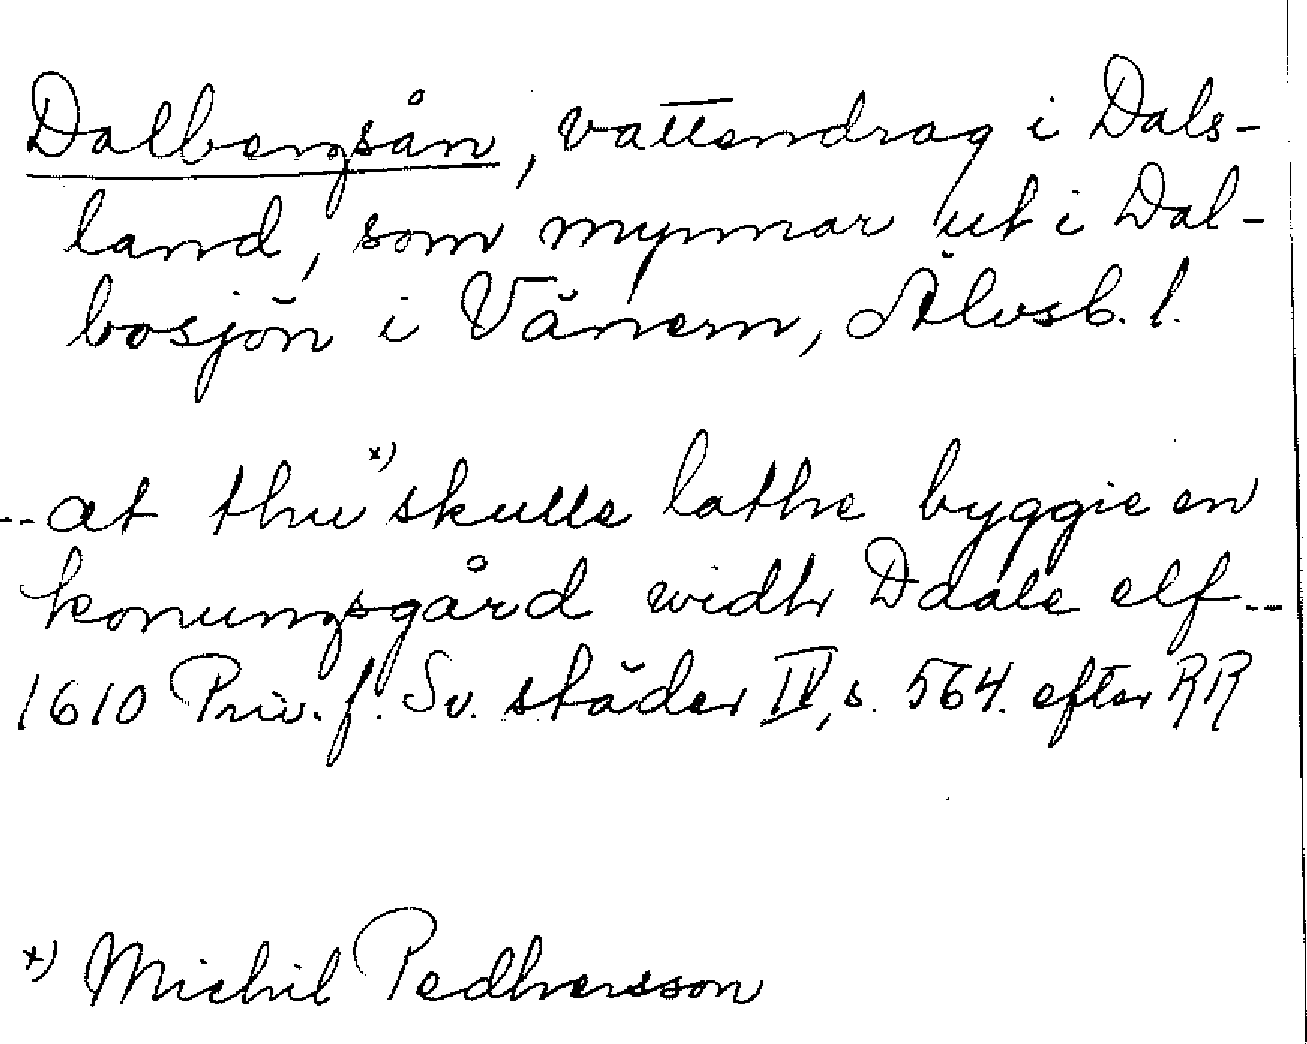 Dalbergsån, vattendrag i Dals-
land, som mynnar ut i Dal-
bosjön i Vänern, Älvsb. l.
--at thu x) skulle lathe byggie en
konungsgård widh Ddale elf--
1610 Priv. f. Sv. städer IV, s. 564. efter RR
x) Michil Pedhersson